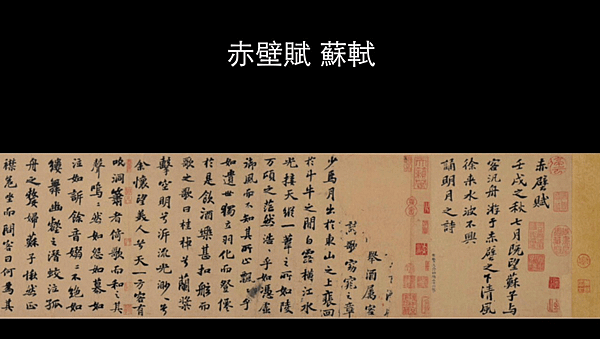 赤壁賦 蘇軾
赤壁賦
壬戌之秋七月既望蘇子与
客汎舟游于赤壁之下清風
徐来水波不興
誦明月之詩
擧酒属客
歌窈窕之章
少焉月出於東山之上裴回
於斗牛之間白露橫江水
光接天縱一葦之所如陵
萬頃之茫然浩浩乎如憑虛
御風而不知其所止飄飄乎
如遺世獨立羽化而登僊
於是飲酒樂甚扣舷而
歌之歌曰桂棹兮蘭槳
擊空明兮泝流光渺渺兮
余懷望美人兮天一方客有
吹洞簫者倚歌而和之其
聲嗚嗚然如怨如慕如
泣如訴餘音嫋嫋不絕如
縷舞幽壑之潛蛟泣孤
舟之嫠婦蘇子愀然正
襟危坐而問客曰何為其